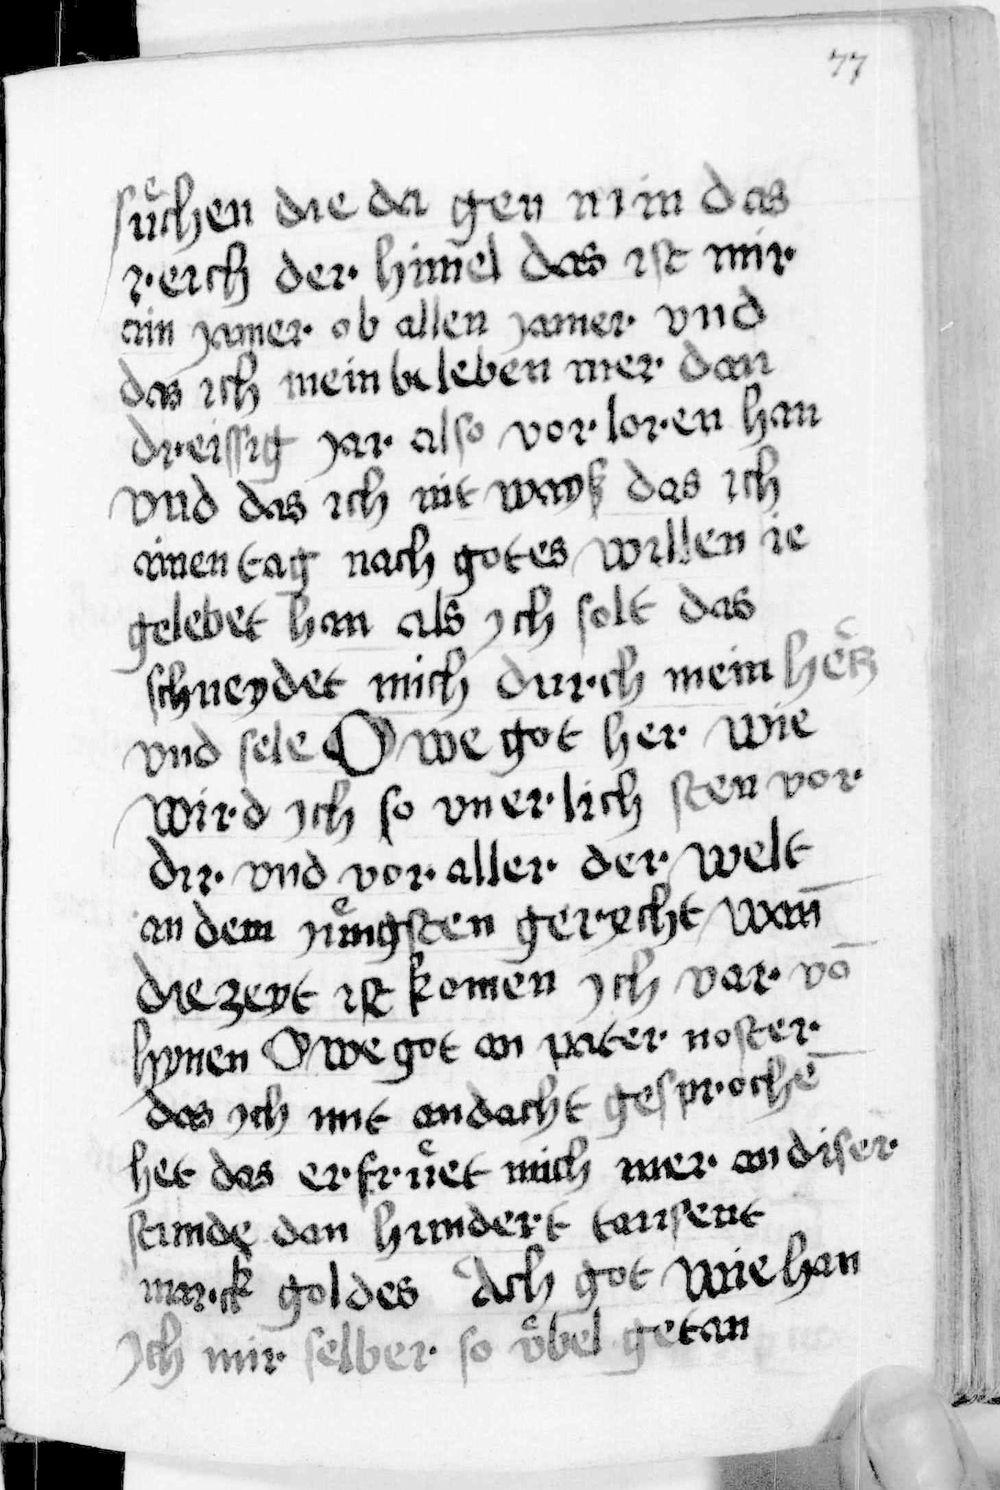 77
sůchen die da gen nim das
reich der himel das ist mir
ain jamer ob allen jamer vnd
das ich mein leben mer dan
dreissig jar also vorloren han
vnd das ich nit wayß das ich
ainen tag nach gotes willen ie
gelebet han als ych solt das
schneydet mich durch mein hertz
vnd sele Owe got her wie
wird ych so vnerlich sten vor
dir vnd vor aller der welt
an dem jüngsten gerycht wañ
die zeyt ist komen ych var võ
hynen Owe got an pater noster
das ych mit andacht gesprochẽ
het das erfrüet mich mer an diser
stunde dan hundert tausent
marck goldes Ach got wie han
ych mir selber so vͤbel getan